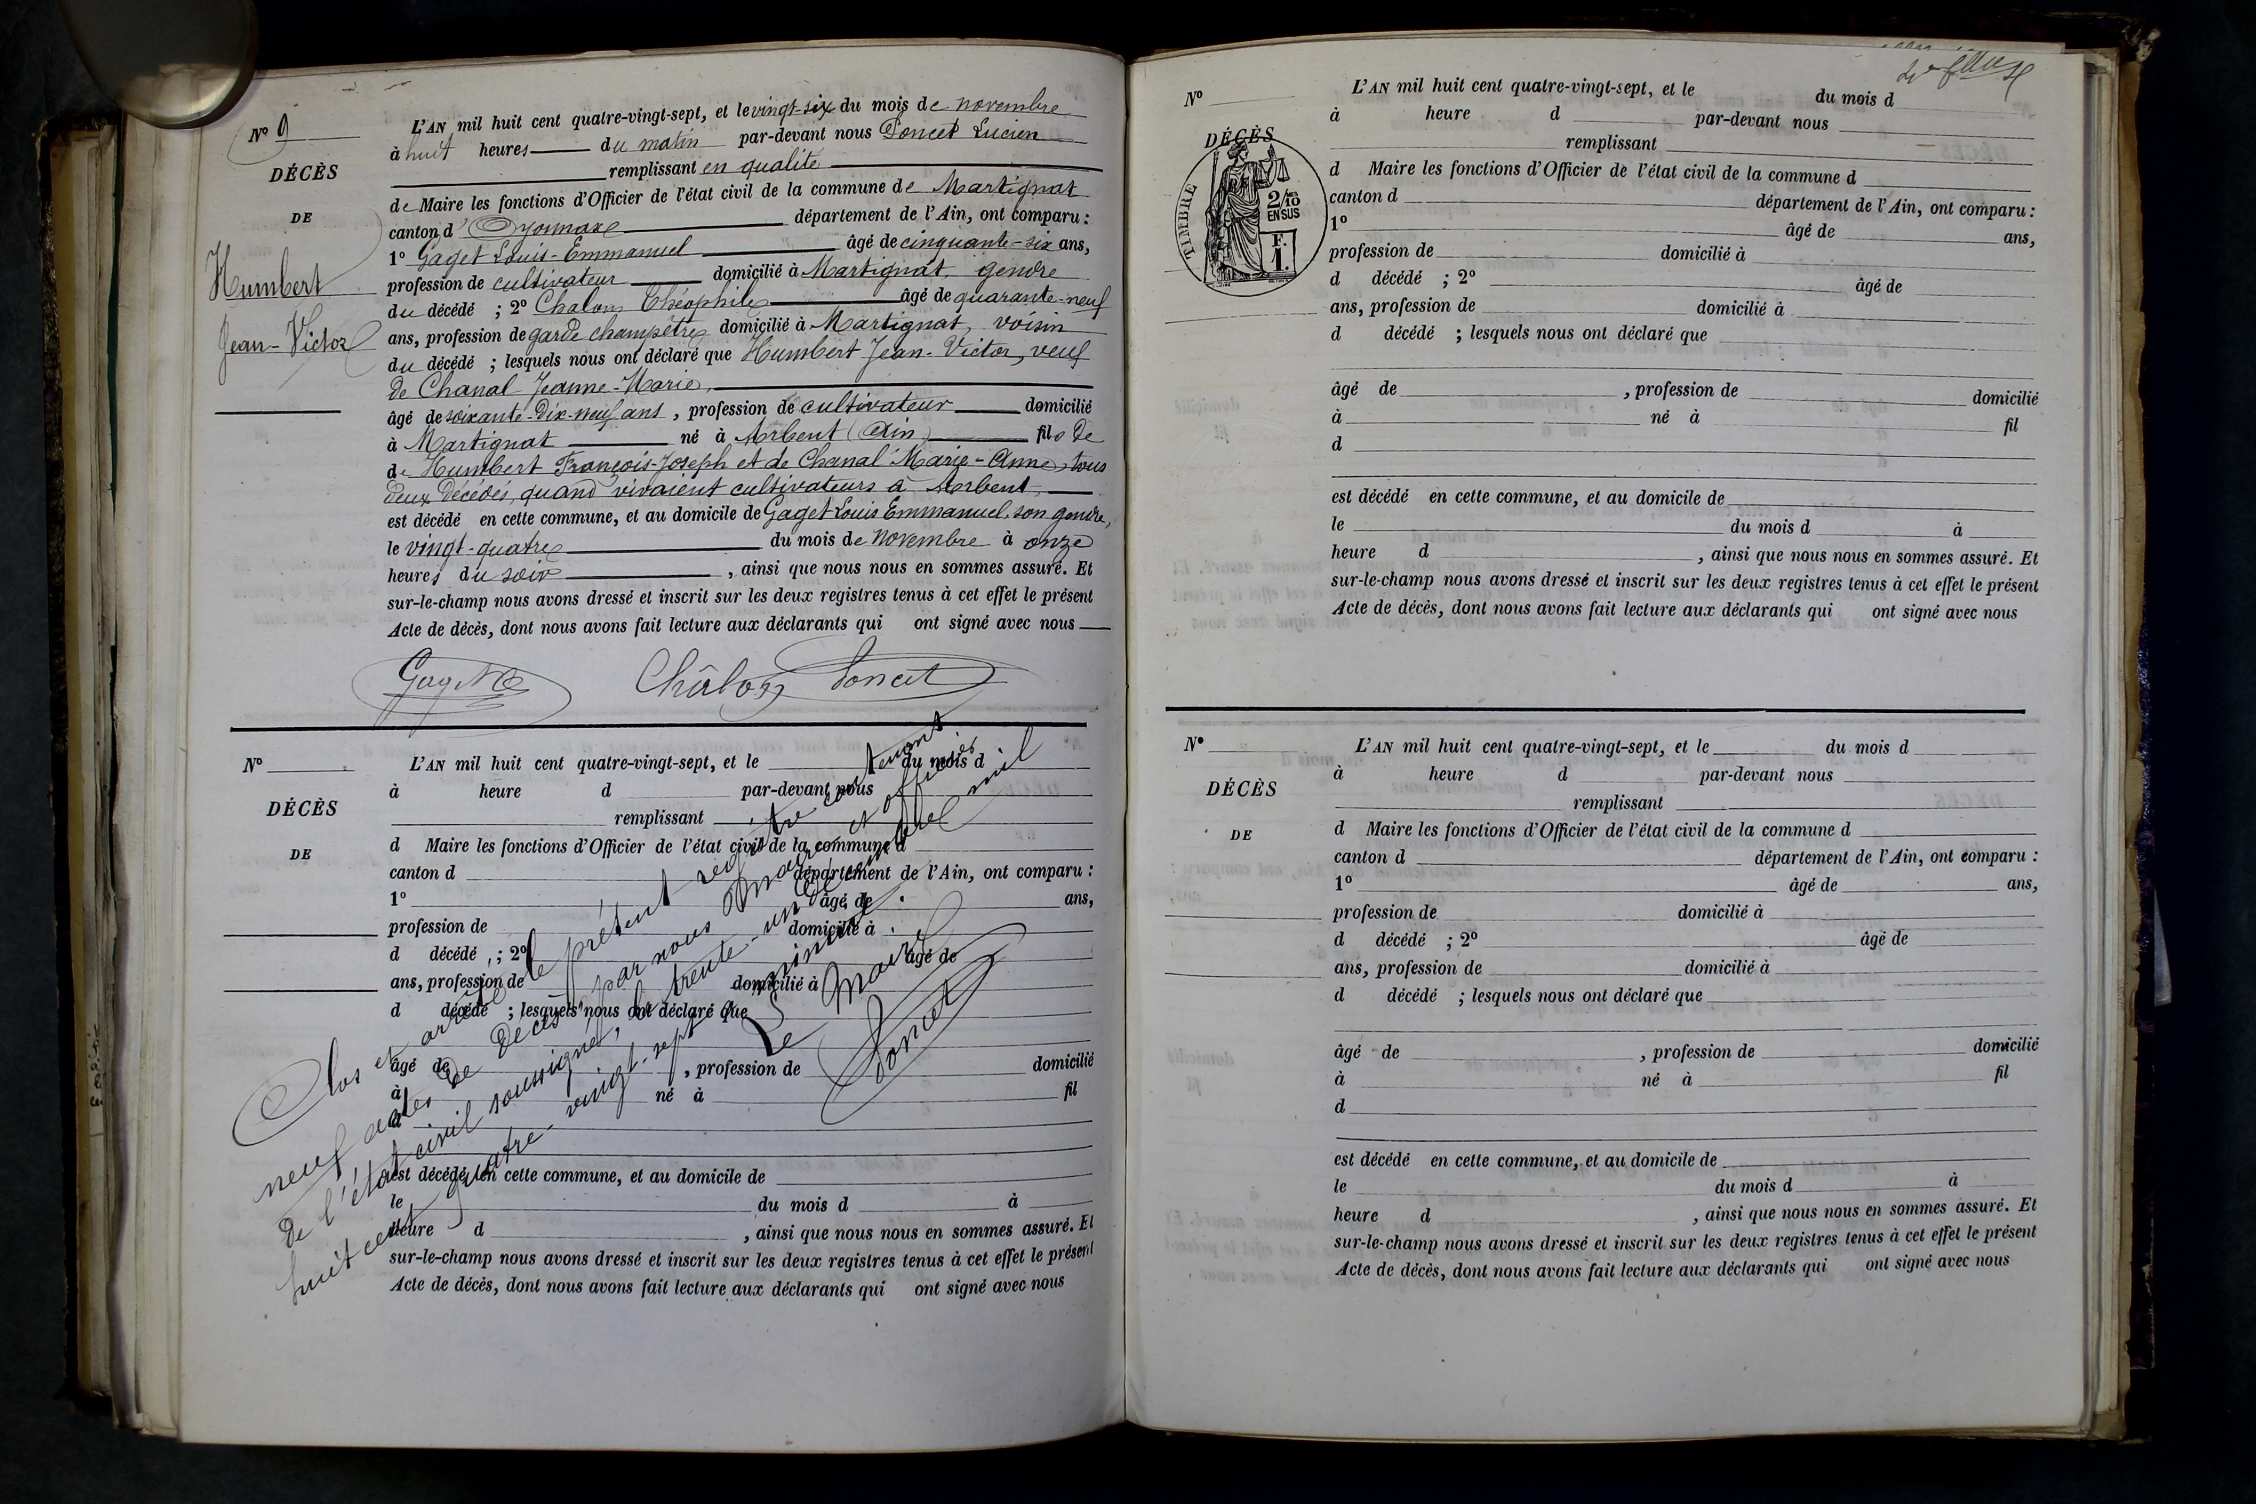 N° 9
DÉCÈS
DE
Humbert
Jean-Victor
L'AN mil huit cent quatre-vingt-sept, et le vingt-six du mois de novembre
à huit heures du matin par-devant nous Poncet Lucien
remplissant en qualité
de Maire les fonctions d'Officier de l'état civil de la commune de Martignat
canton d'Oyonnax département de l'Ain, ont comparu :
1° Gaget Louis-Emmanuel âgé de cinquante-six ans,
profession de cultivateur domicilié à Martignat, gendre
du décédé ; 2° Chalon Théophile âgé de quarante-neuf
ans, profession de garde champêtre domicilié à Martignat, voisin
du décédé ; lesquels nous ont déclaré que Humbert Jean-Victor, veuf
de Chanal Jeanne-Marie,
âgé de soixante-dix-neuf ans, profession de cultivateur domicilié
à Martignat né à Arbent (Ain) fils de
de Humbert François-Joseph et de Chanal Marie-Anne, tous
deux décédés, quand vivaient cultivateurs à Arbent,
est décédé en cette commune, et au domicile de Gaget Louis Emmanuel, son gendre,
le vingt-quatre du mois de novembre à onze
heures du soir, ainsi que nous nous en sommes assuré. Et
sur-le-champ nous avons dressé et inscrit sur les deux registres tenus à cet effet le présent
Acte de décès, dont nous avons fait lecture aux déclarants qui ont signé avec nous
Gaget Châlon Poncet
N°
DÉCÈS
DE
L'AN mil huit cent quatre-vingt-sept, et le du mois d
à heure d par-devant nous
remplissant
d Maire les fonctions d'Officier de l'état civil de la commune d
canton d département de l'Ain, ont comparu :
1° âgé de ans,
profession de domicilié à
d décédé ; 2° âgé de
ans, profession de domicilié à
d décédé ; lesquels nous ont déclaré que
âgé de , profession de domicilié
à né à fil
d
est décédé en cette commune, et au domicile de
le du mois d à
heure d , ainsi que nous nous en sommes assuré. Et
sur-le-champ nous avons dressé et inscrit sur les deux registres tenus à cet effet le présent
Acte de décès, dont nous avons fait lecture aux déclarants qui ont signé avec nous
Clos et arrêté le présent registre contenant
neuf actes de décès par nous Maire et officier
de l'état civil soussigné, le trente-un décembre mil
huit cent quatre-vingt-sept
Le Maire
Poncet
N°
DÉCÈS
TIMBRE
2/10 EN SUS
F. 1.
L'AN mil huit cent quatre-vingt-sept, et le du mois d
à heure d par-devant nous
remplissant
d Maire les fonctions d'Officier de l'état civil de la commune d
canton d département de l'Ain, ont comparu :
1° âgé de ans,
profession de domicilié à
d décédé ; 2° âgé de
ans, profession de domicilié à
d décédé ; lesquels nous ont déclaré que
âgé de , profession de domicilié
à né à fil
d
est décédé en cette commune, et au domicile de
le du mois d à
heure d , ainsi que nous nous en sommes assuré. Et
sur-le-champ nous avons dressé et inscrit sur les deux registres tenus à cet effet le présent
Acte de décès, dont nous avons fait lecture aux déclarants qui ont signé avec nous
N°
DÉCÈS
DE
L'AN mil huit cent quatre-vingt-sept, et le du mois d
à heure d par-devant nous
remplissant
d Maire les fonctions d'Officier de l'état civil de la commune d
canton d département de l'Ain, ont comparu :
1° âgé de ans,
profession de domicilié à
d décédé ; 2° âgé de
ans, profession de domicilié à
d décédé ; lesquels nous ont déclaré que
âgé de , profession de domicilié
à né à fil
d
est décédé en cette commune, et au domicile de
le du mois d à
heure d , ainsi que nous nous en sommes assuré. Et
sur-le-champ nous avons dressé et inscrit sur les deux registres tenus à cet effet le présent
Acte de décès, dont nous avons fait lecture aux déclarants qui ont signé avec nous